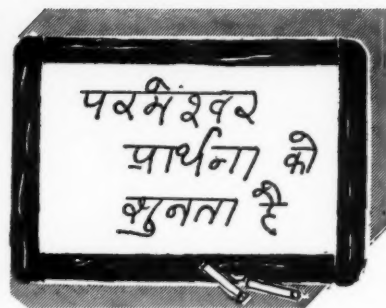 परमेश्वर
प्रार्थना को
सुनता है